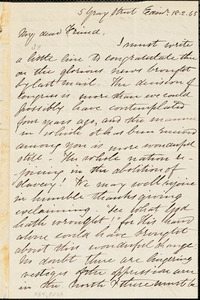 5 Gray Street Edinr 18.2.65
My dear Friend,
I must write
a little line to congratulate thee
on the glorious news brought
by last mail. The decision of
Congress is more than we could
possibly have contemplated
four years ago, and the manner
in which it has been received
among you is more wonderful
still. The whole nation re-
joicing in the abolition of
slavery! We may well rejoice
in humble thanksgiving
exclaiming, "See what God
hath wrought", for his hand
alone could have brought
about this wonderful change
No doubt there are lingering
vestiges of the oppression even
in the North & there must be